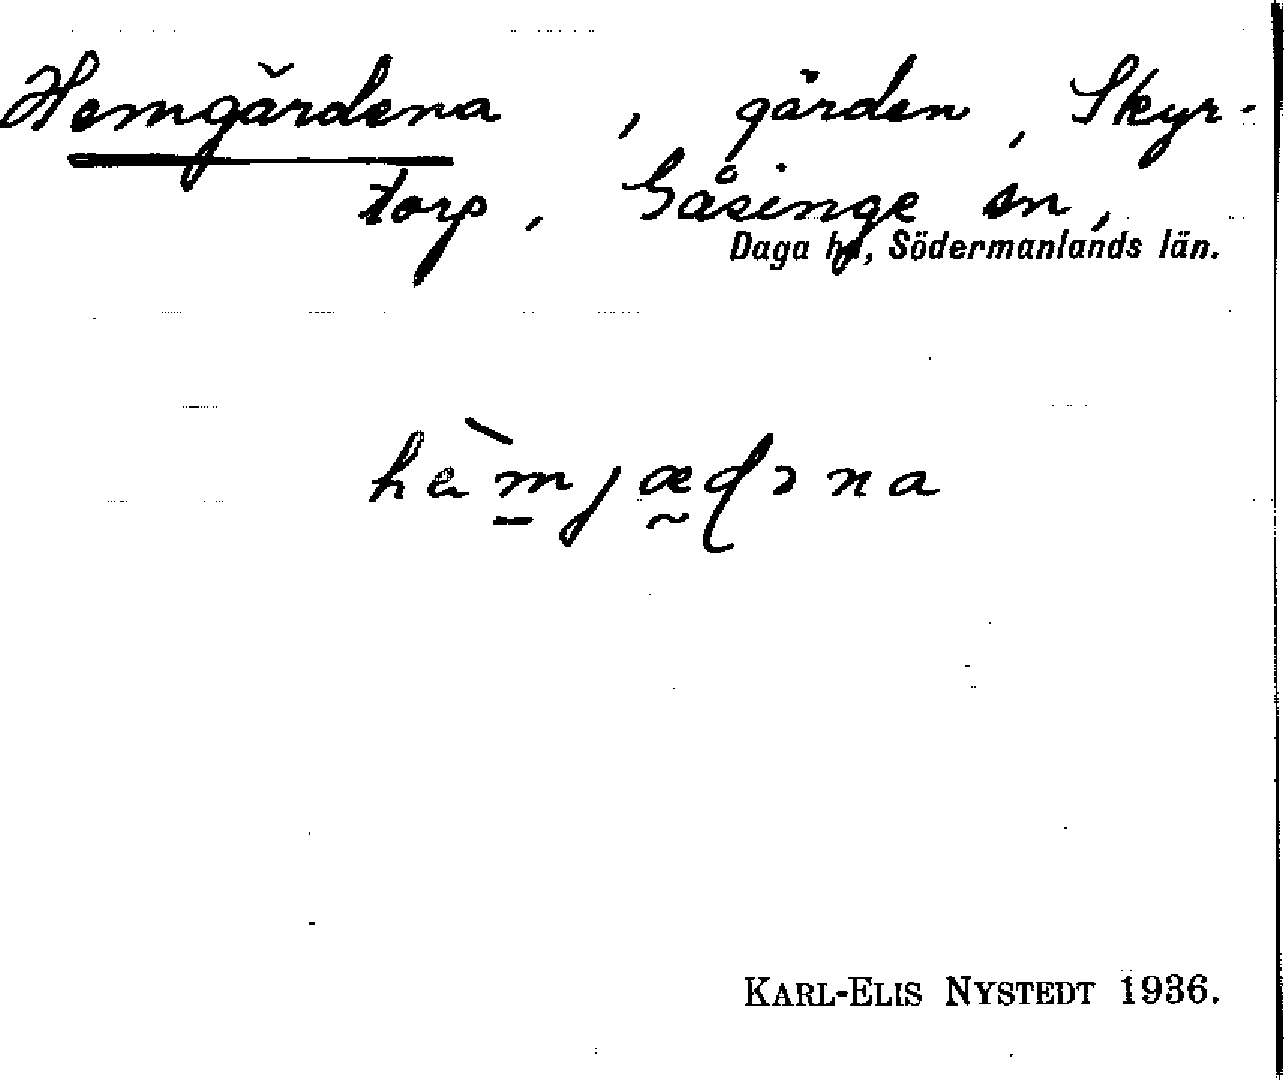 Hemgärdena, gärden, Skyr-
torp, Gåsinge sn,
Daga hd, Södermanlands län.
KARL-ELIS NYSTEDT 1936.